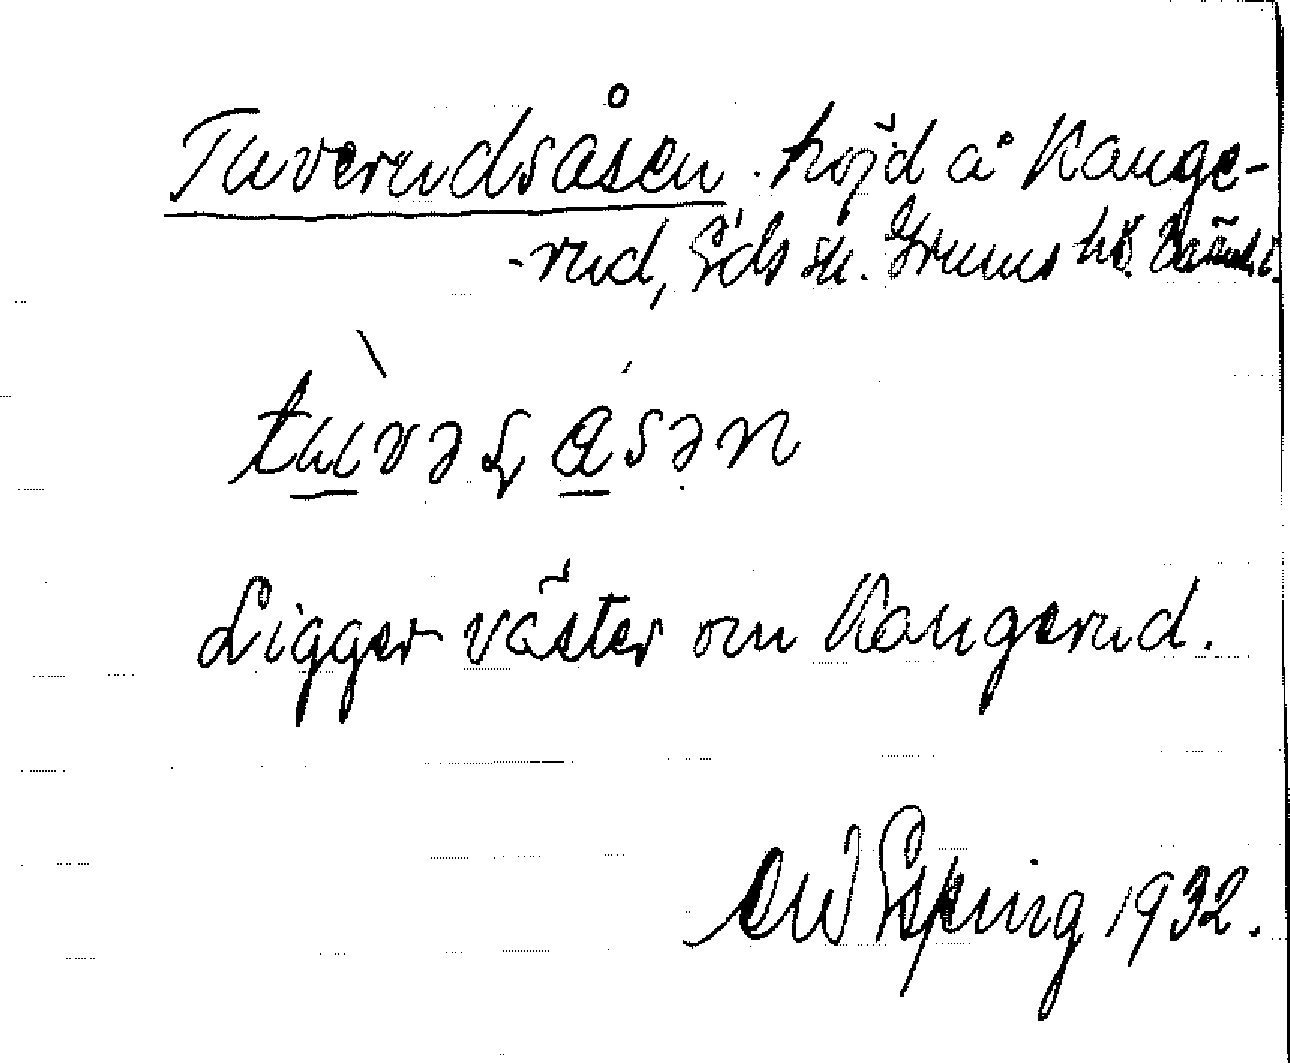 Tuverudsåsen. höjd å Kange-
-rud, Eds sn. Grums hd. Värml.
tuvəʂ ɑsən
Ligger väster om Kangerud.
Esping 1932.